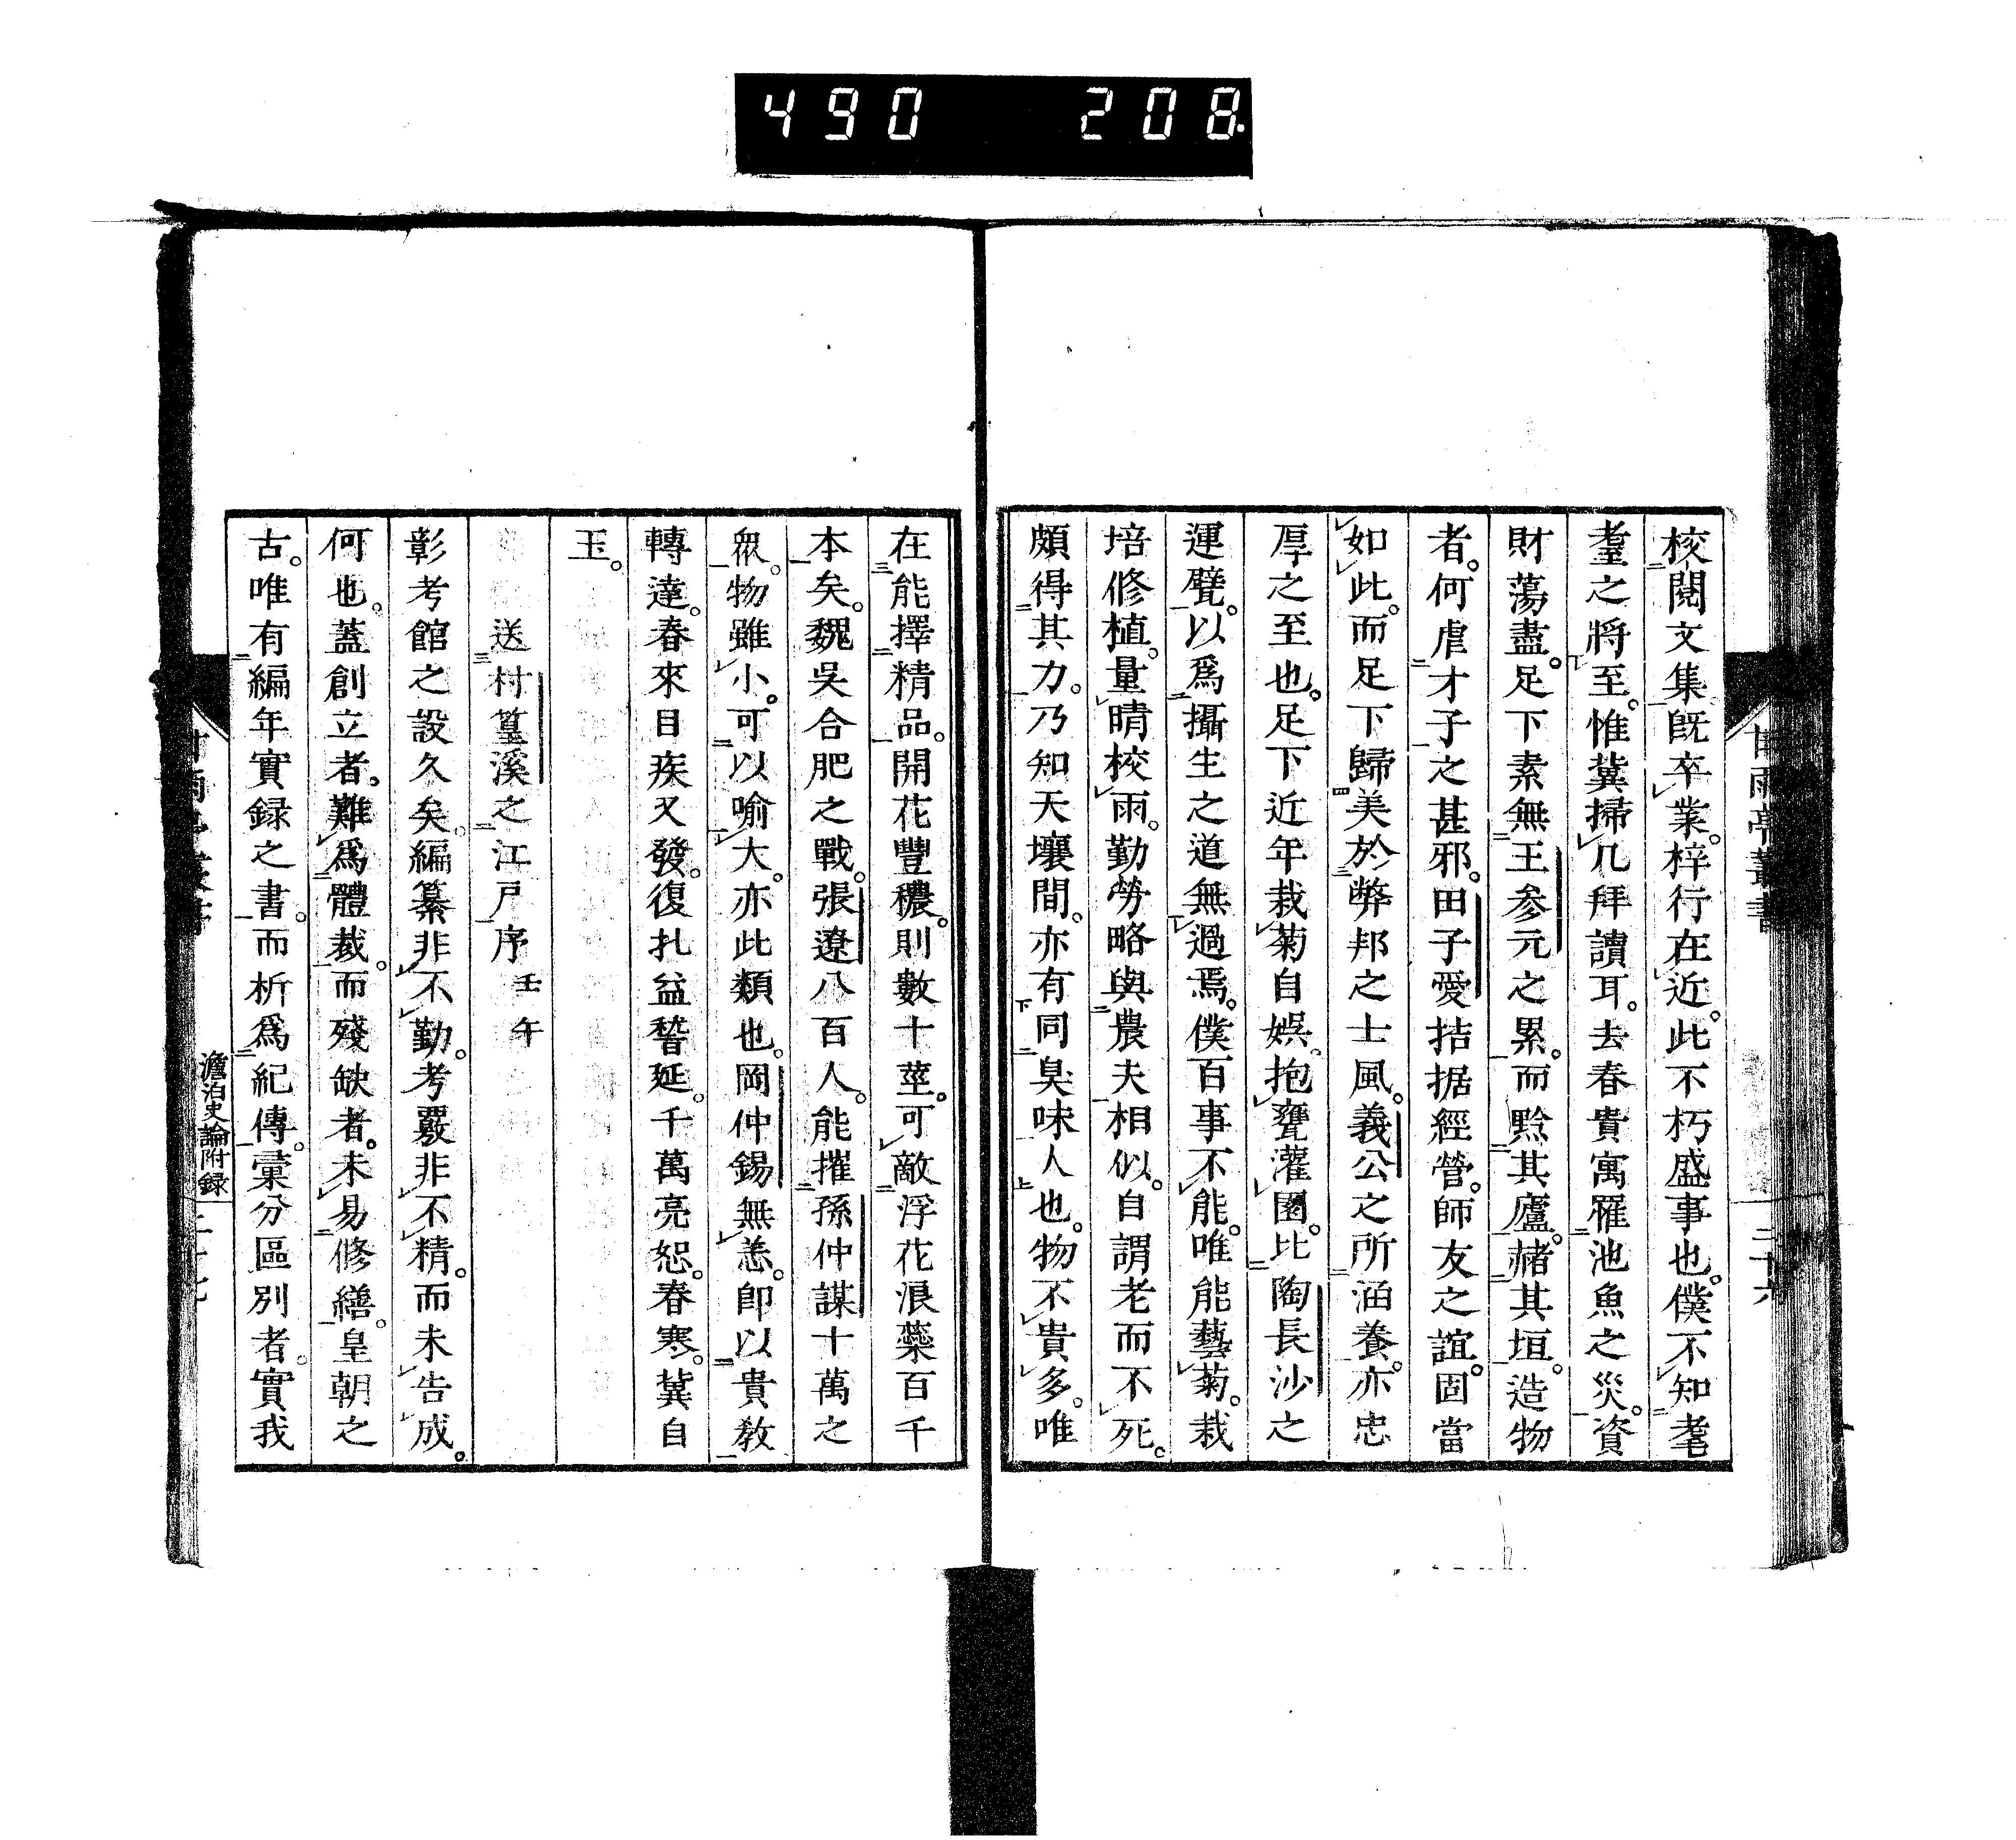 490 208
甘雨亭叢書
三十六
校閲文集旣卒業。梓行在近。此不朽盛事也。僕不知耄
耋之將至。惟冀掃几拜讀耳。去春貴寓罹池魚之災。資
財蕩盡。足下素無王参元之累。而黔其廬。赭其垣。造物
者。何虐才子之甚邪。田子愛拮据經營。師友之誼。固當
如此。而足下歸美於弊邦之士風。義公之所涵養。亦忠
厚之至也。足下近年栽菊自娯。抱甕灌園。比陶長沙之
運甓。以爲攝生之道無過焉。僕百事不能。唯能藝菊。栽
培修植。量晴校雨。勤勞略與農夫相似。自謂老而不死。
頗得其力。乃知天壤間。亦有同臭味人也。物不貴多。唯
在能擇精品。開花豐穠。則數十莖。可敵浮花浪蘂百千
本矣。魏吳合肥之戰。張遼八百人。能摧孫仲謀十萬之
衆。物雖小。可以喻大。亦此類也。岡仲錫無恙。卽以貴敎
轉達。春來目疾又發。復扎益稽延。千萬亮恕。春寒。冀自
玉。
送村篁溪之江戸序 壬午
彰考館之設久矣。編纂非不勤。考覈非不精。而未告成。
何也。蓋創立者。難爲體裁。而殘缺者。未易修繕。皇朝之
古。唯有編年實録之書。而析爲紀傳。彙分區別者。實我
澹泊史論附録